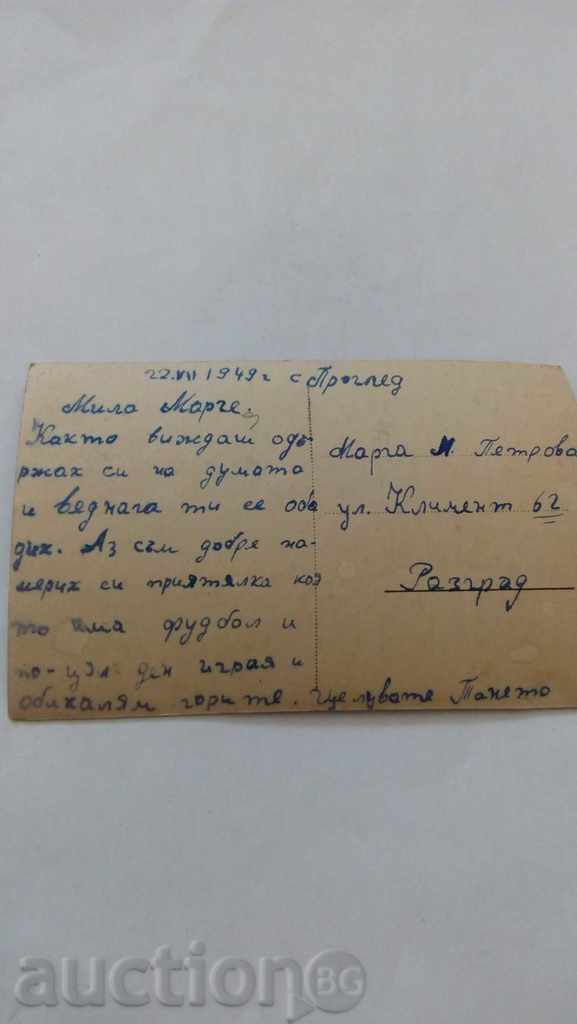 22.VII 1949 г с Проглед
Мила Марче,
Както виждаш одъ-
ржах си на думата
и веднага ти се оба
дих. Аз съм добре на-
мерих си приятялка коя
то има фудбол и
по-цял ден играя и
обикалям горите. Целувате Тането
Марга М. Петрова
ул. Климент 62
Разград
auctionBG